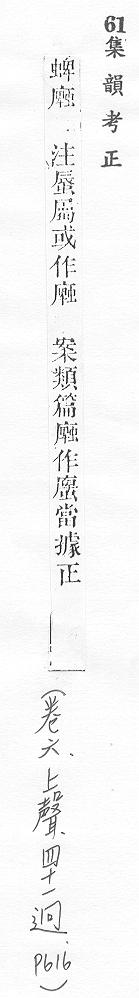 61
集韻考正
蜱 注蜃屬或作 案類篇作當據正
(卷六、上聲、四十一迥、P616)